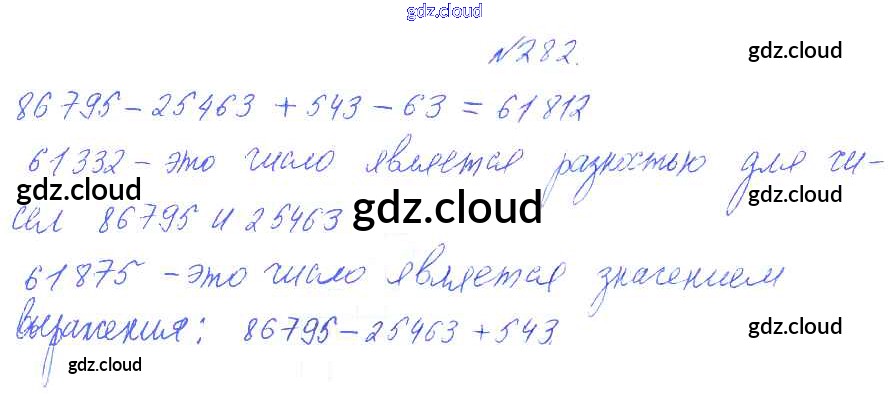 gdz.cloud
№282. gdz.cloud
86795 - 25463 + 543 - 63 = 61812
61332 - это число является разностью для чи-
gdz.cloud gdz.cloud
сел 86795 и 25463 gdz.cloud
61875 - это число является значением
выражения: 86795 - 25463 + 543. gdz.cloud
gdz.cloud